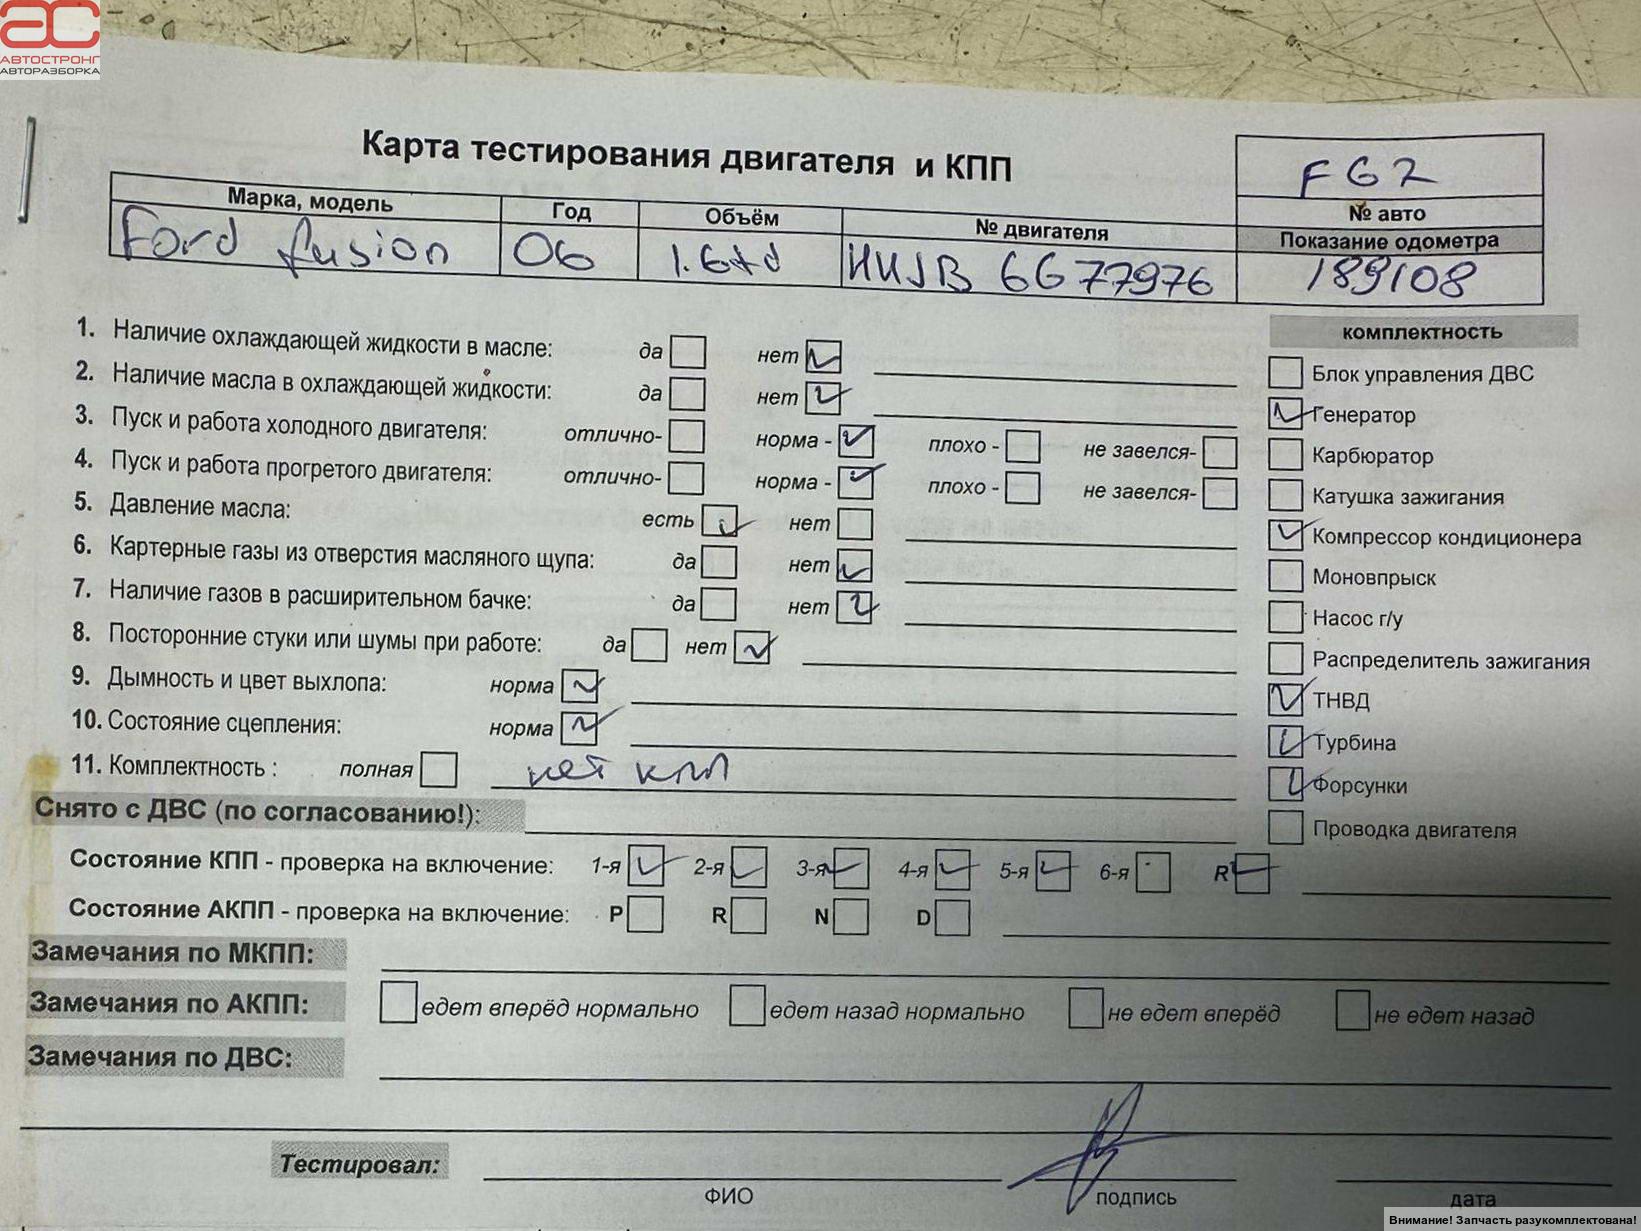 АС
АВТОСТРОНГ
АВТОРАЗБОРКА
Карта тестирования двигателя и КПП
FG2
№ авто
Марка, модель Год Объём № двигателя Показание одометра
Ford fusion 06 1.6td HHJB 6G77976 189108
1. Наличие охлаждающей жидкости в масле: да нет
2. Наличие масла в охлаждающей жидкости: да нет
3. Пуск и работа холодного двигателя: отлично- норма - плохо - не завелся-
4. Пуск и работа прогретого двигателя: отлично- норма - плохо - не завелся-
5. Давление масла: есть нет
6. Картерные газы из отверстия масляного щупа: да нет
7. Наличие газов в расширительном бачке: да нет
8. Посторонние стуки или шумы при работе: да нет
9. Дымность и цвет выхлопа: норма
10. Состояние сцепления: норма
11. Комплектность : полная нет кпп
комплектность
Блок управления ДВС
Генератор
Карбюратор
Катушка зажигания
Компрессор кондиционера
Моновпрыск
Насос г/у
Распределитель зажигания
ТНВД
Турбина
Форсунки
Проводка двигателя
Снято с ДВС (по согласованию!):
Состояние КПП - проверка на включение: 1-я 2-я 3-я 4-я 5-я 6-я R
Состояние АКПП - проверка на включение: P R N D
Замечания по МКПП:
Замечания по АКПП: едет вперёд нормально едет назад нормально не едет вперёд не едет назад
Замечания по ДВС:
Тестировал:
ФИО подпись дата
Внимание! Запчасть разукомплектована!